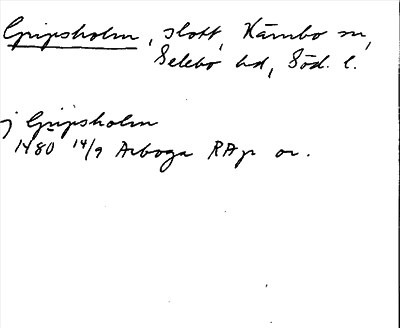 Gripsholm, slott, Kärnbo sn,
Selebo hd, Söd. l.
j Gripsholm
1480 14/9 Arboga RAp or.